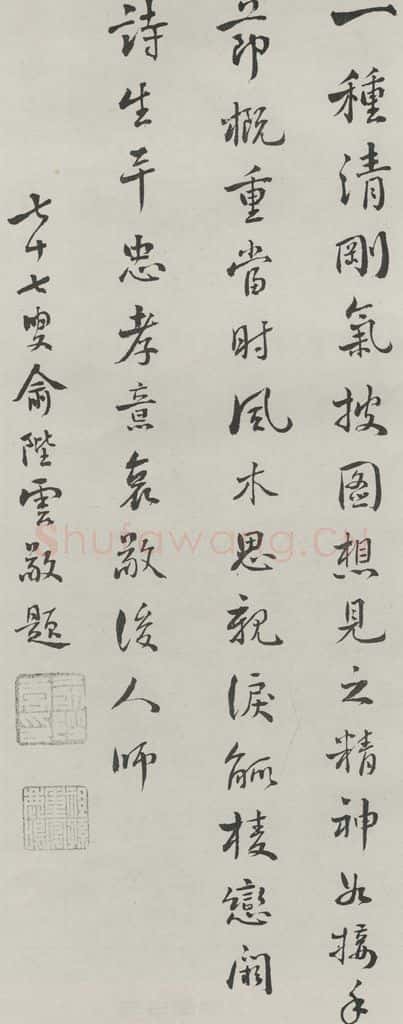 一種清剛氣披圖想見之精神如接手
節概重當时風木思親淚觚棱戀闕
詩生平忠孝意哀敬後人師
七十七叟俞陛雲敬題
Shufawang.cn